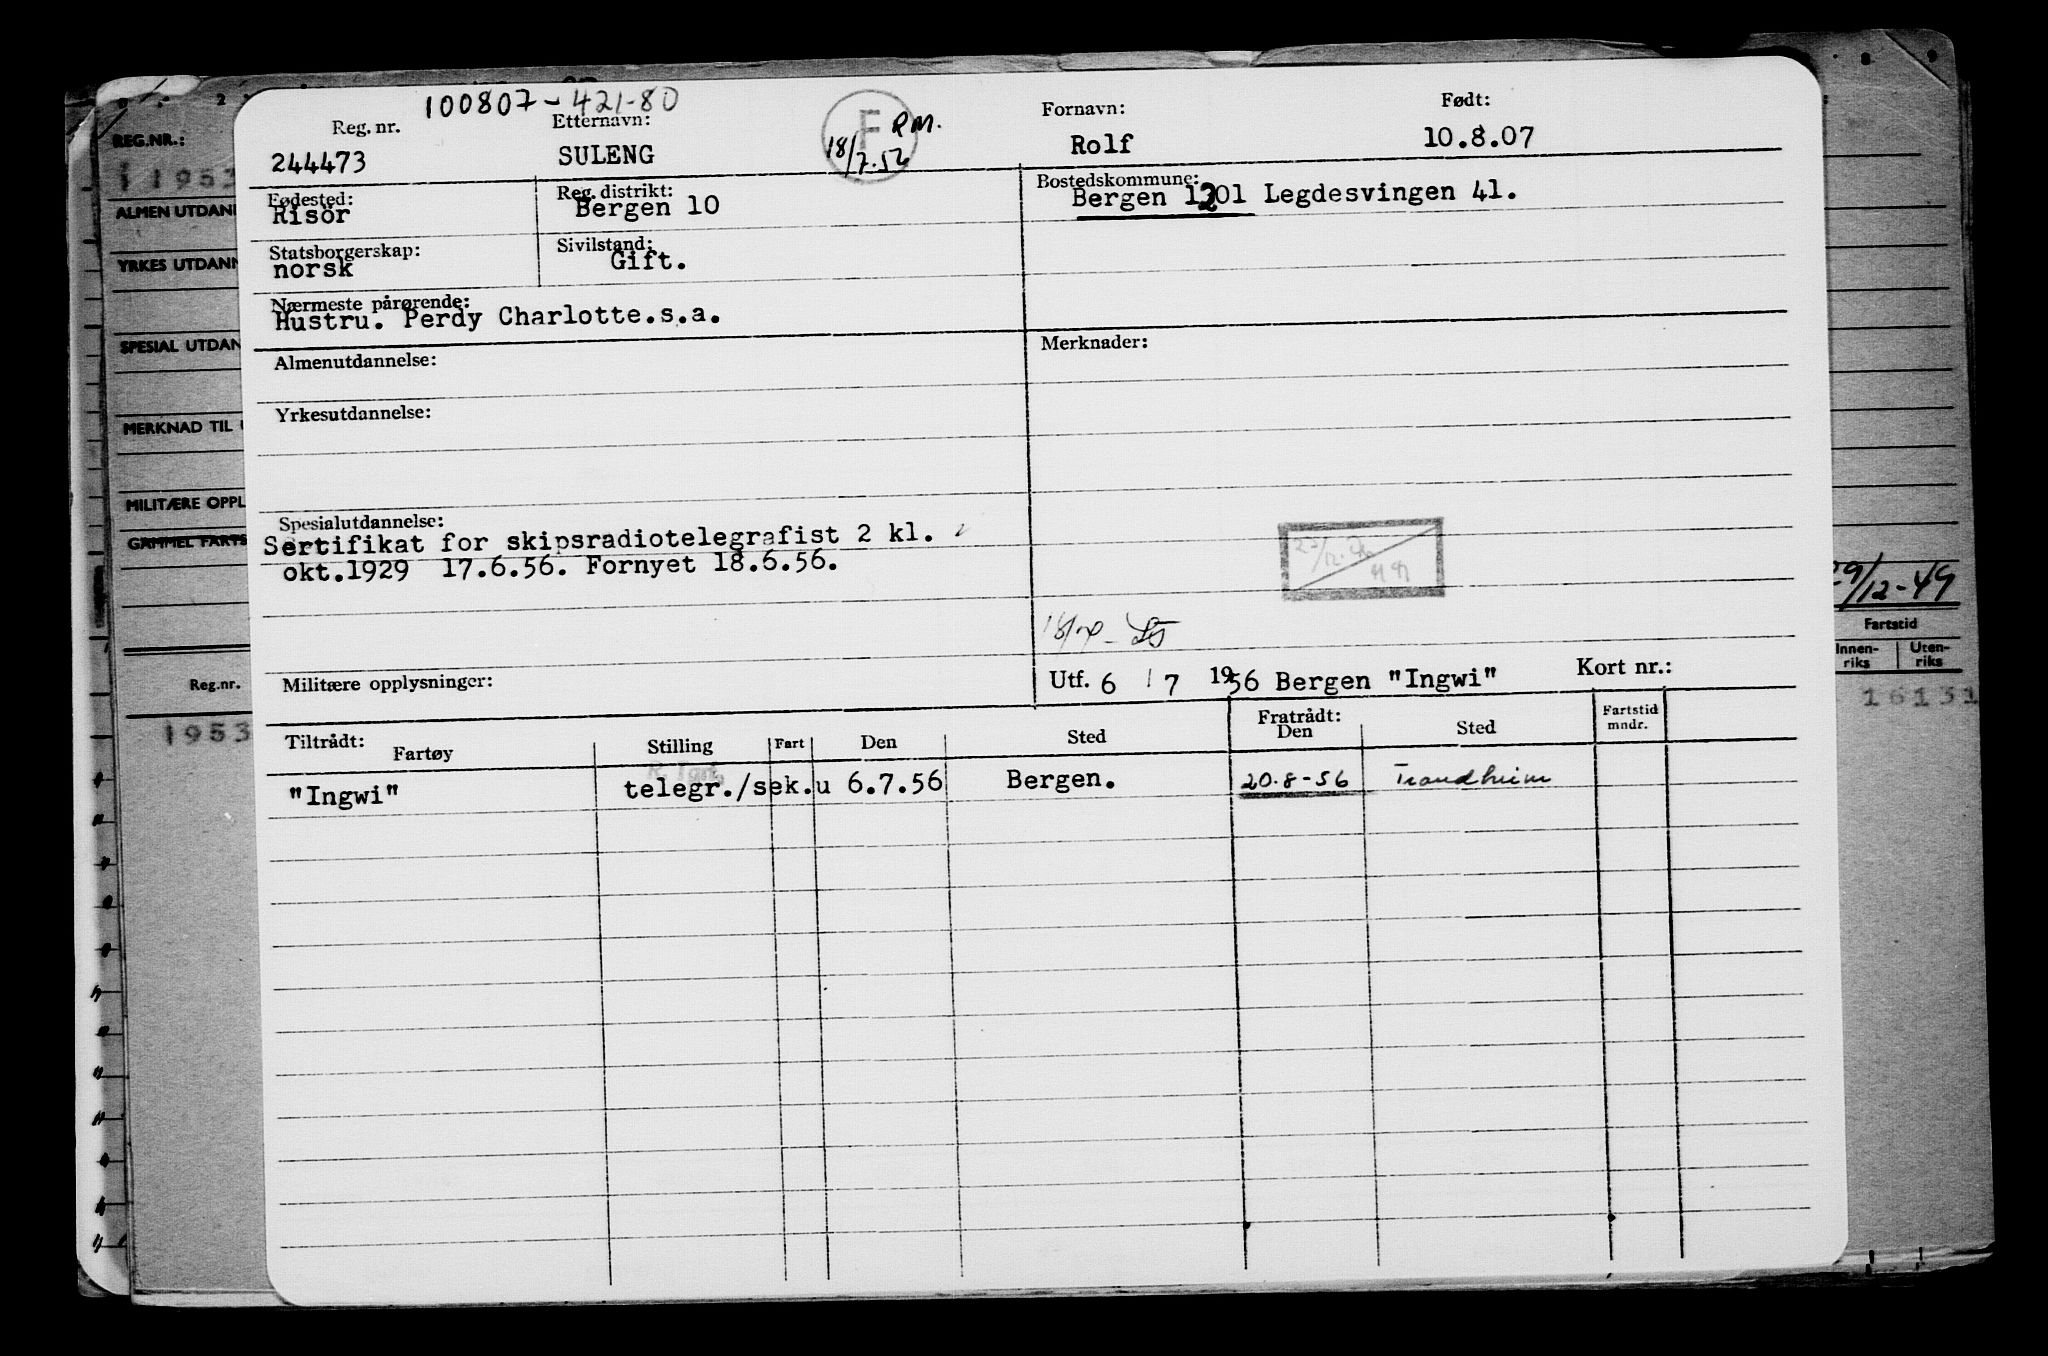 100807-421-80
Reg. nr. Etternavn: Fornavn: Født:
244473 SULENG F 18/7.56 RM. Rolf 10.8.07
Fødested: Reg. distrikt: Bostedskommune:
Risör Bergen 10 Bergen 1201 Legdesvingen 41.
Statsborgerskap: Sivilstand:
norsk Gift.
Nærmeste pårørende:
Hustru. Perdy Charlotte.s.a.
Almenutdannelse: Merknader:
Yrkesutdannelse:
Spesialutdannelse:
Sertifikat for skipsradiotelegrafist 2 kl.
okt.1929 17.6.56. Fornyet 18.6.56.
Militære opplysninger: Utf. 6 / 7 1956 Bergen "Ingwi" Kort nr.:
Tiltrådt: Fratrådt:
Fartøy Stilling Fart Den Sted Den Sted Fartstid mndr.
"Ingwi" telegr./sek.u 6.7.56 Bergen. 20.8-56 Trondheim
REG.NR.:
1953
ALMEN UTDAN
YRKES UTDANN
SPESIAL UTDAN
MERKNAD TIL
MILITÆRE OPPL
GAMMEL FARTS
Reg.nr.
1953
29/12-49
Fartstid
Innen-riks Uten-riks
16131